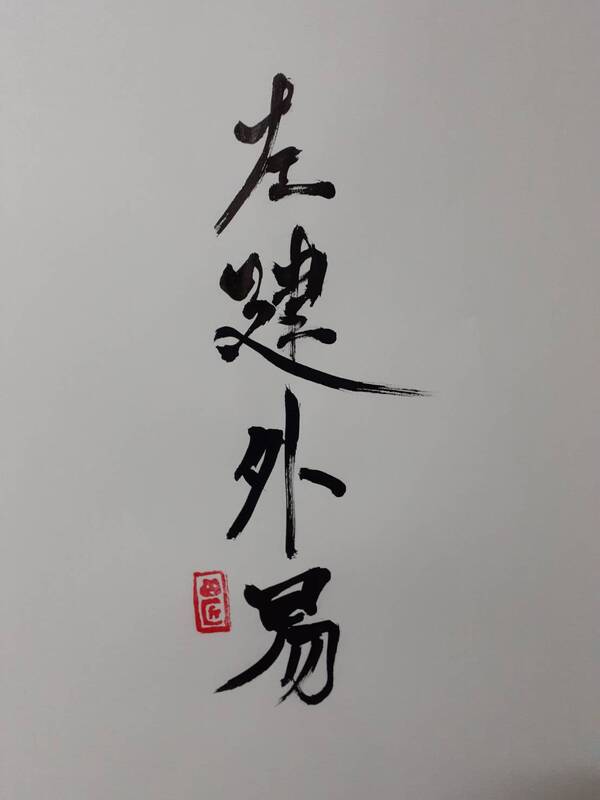 左建外易